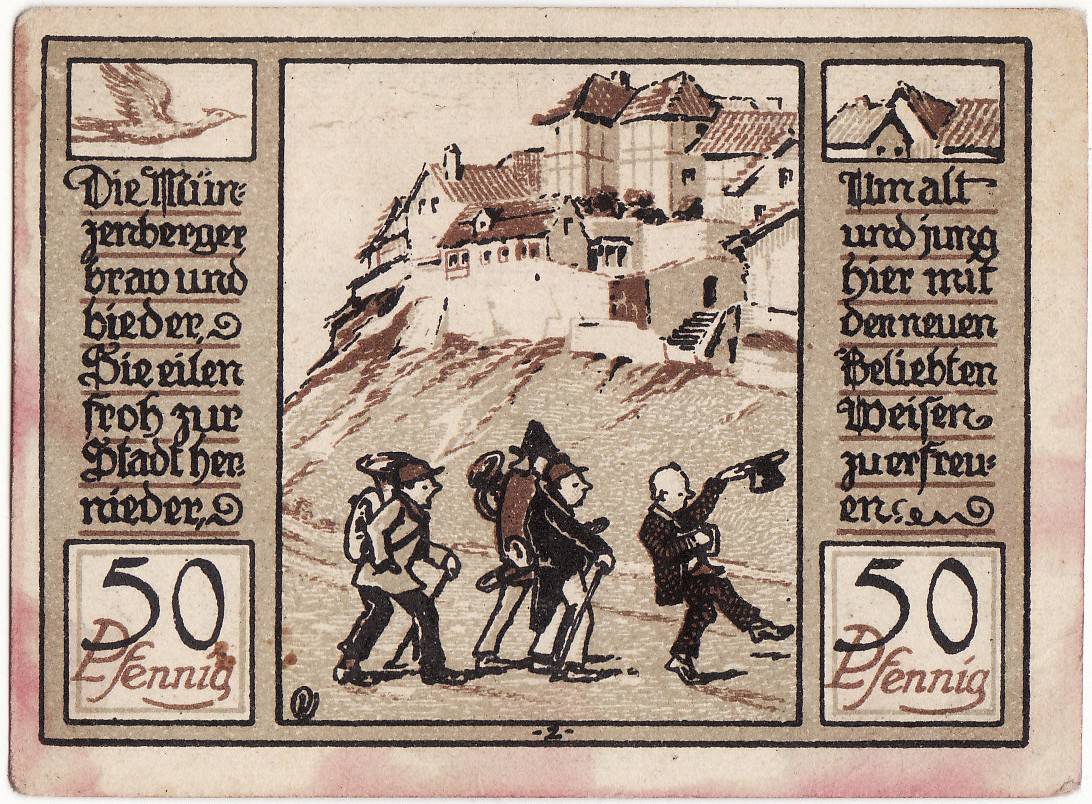 Die Mün-
zenberger
brav und
bieder,
Sie eilen
froh zur
Stadt her-
nieder,
50
Pfennig
Um alt
und jung
hier mit
den neuen
Beliebten
Weisen
zu erfreu-
en.
50
Pfennig
-2-